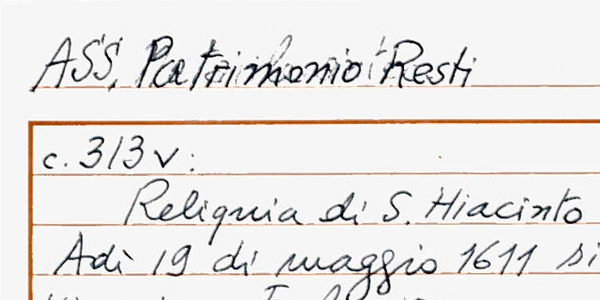 ASS, Patrimonio Resti
c. 313v:
Reliquia di S. Hiacinto
Adì 19 di maggio 1611 si